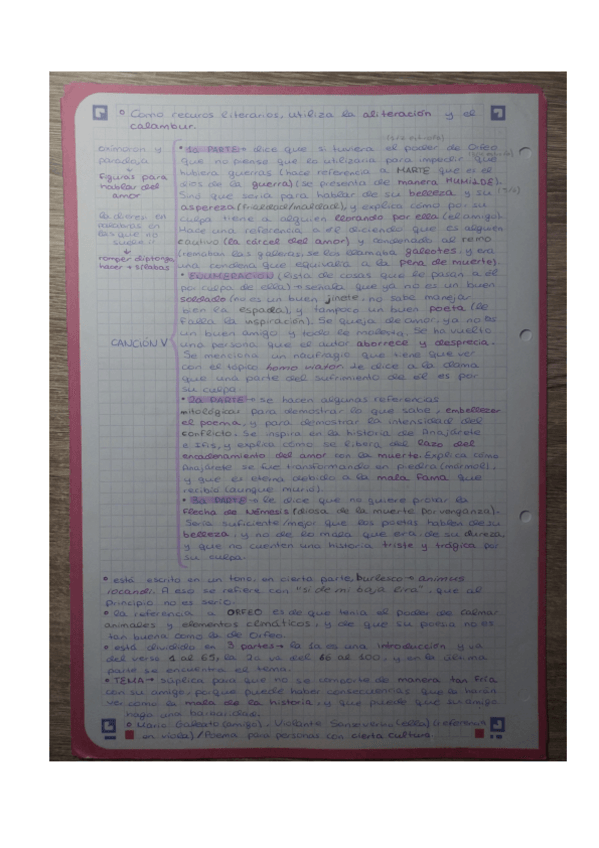 • Como recursos literarios, utiliza la aliteración y el
calambur.
oxímoron y
paradoja
↓
figuras para
hablar del
amor
la diéresis en
palabras en
las que no
suele ir
↓
romper diptongo,
hacer + sílabas
CANCIÓN V
• 1a PARTE → dice que si tuviera el poder de Orfeo
que no piense que lo utilizaría para impedir que
hubiera guerras (hace referencia a MARTE que es el
dios de la guerra) (se presenta de manera HUMILDE).
Sino que sería para hablar de su belleza y su
aspereza (frialdad/maldad), y explica cómo por su
culpa tiene a alguien llorando por ella (el amigo).
Hace una referencia a él diciendo que es alguien
cautivo (la cárcel del amor) y condenado al remo
(remaban las galeras). Se los llamaba galeotes, y era
una condena que equivalía a la pena de muerte).
• ENUMERACIÓN (lista de cosas que le pasan a él
por culpa de ella) → señala que ya no es un buen
soldado (no es un buen jinete, no sabe manejar
bien la espada), y tampoco un buen poeta (le
falla la inspiración). Se queja de amor, ya no es
un buen amigo y todo le molesta. Se ha vuelto
una persona que el autor aborrece y desprecia.
Se menciona un naufragio que tiene que ver
con el tópico homo viator. Le dice a la dama
que una parte del sufrimiento de él es por
su culpa.
• 2a PARTE → se hacen algunas referencias
mitológicas para demostrar lo que sabe, embellecer
el poema, y para demostrar la intensidad del
conflicto. Se inspira en la historia de Anajárete
e Ifis, y explica cómo se libera del lazo del
encadenamiento del amor con la muerte. Explica cómo
Anajárete se fue transformando en piedra (mármol),
y que es eterna debido a la mala fama que
recibió (aunque murió).
• 3a PARTE → le dice que no quiere probar la
flecha de Némesis (diosa de la muerte por venganza).
Sería suficiente/mejor que los poetas hablen de su
belleza, y no de lo mala que era, de su dureza,
y que no cuenten una historia triste y trágica por
su culpa.
• está escrito en un tono, en cierta parte, burlesco → animus
iocandi. A eso se refiere con "si de mi baja lira", que al
principio no es serio.
• la referencia a ORFEO es de que tenía el poder de calmar
animales y elementos climáticos, y de que su poesía no es
tan buena como la de Orfeo.
• está dividido en 3 partes → la 1a es una introducción y va
del verso 1 al 65, la 2a va del 66 al 100, y en la última
parte se encuentra el tema.
• TEMA → súplica para que no se comporte de manera tan fría
con su amigo, porque puede haber consecuencias que la harán
ver como la mala de la historia, y que puede que su amigo
haga una barbaridad.
• Mario Galeoto (amigo). Violante Sanseverino (ella) (referencia
en viola) / Poema para personas con cierta cultura.